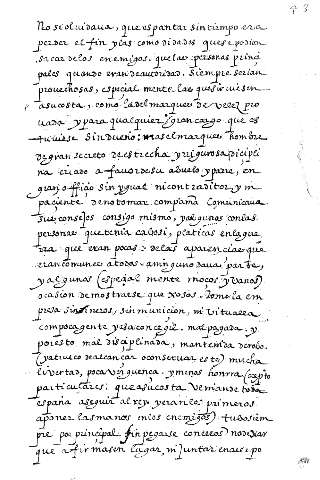 43
No se olvidava, que espantar sin tiempo era
perder el fin y las comodidades que se podian
sacar de los enemigos. que las personas princi
pales quando eran de autoridad, siempre serian
provechosas, especial mente las que sirviesen
a su costa, como la del marques de velez pro
vada y para qualquier gran cargo que es
tuviese sin dueño: mas el marques hombre
de gran secreto de estrecha y rigurosa discipli
na criado a favor de su abuelo y padre, en
gran officio sin ygual ni contraditor y im
paciente de no tomar compañia comunicava
sus consejos consigo mismo, y algunos con las
personas que tenia cabe si, platicas en la gue
rra que eran pocas: de las aparencias que
eran comunes a todos a ninguno dava parte,
y algunos (especial mente moços y vanos)
ocasion de mostrarse quexosos. Tomo la em
presa sin dineros, sin municion, ni vitualla
con poca gente y esa concegil mal pagada, y
por esto mal disciplinada, mantenida de robo.
(y a trueco de alcançar o conservar este) mucha
libertad, poca vergueça, y menos honrra (excepto
particulares que a su costa venian de toda
españa a seguir al rey y eran los primeros
a poner las manos en los enemigos) tuvo siem
pre por principal fin pegarse con ellos no dexar
que afirmasen lugar ni juntar en cuerpo